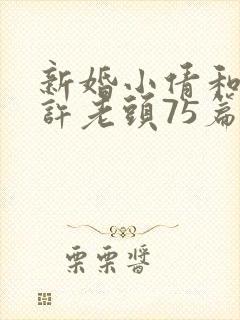 新婚小倩和
許老頭75篇
栗栗醬